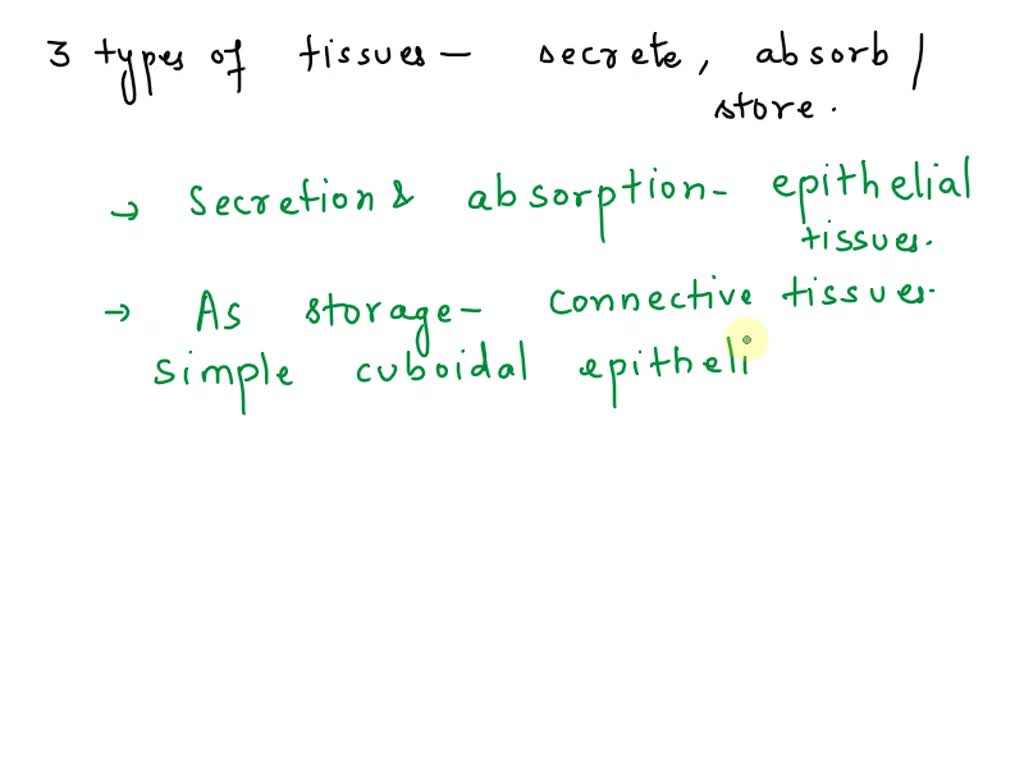 3 types of tissues - secrete, absorb /
store.
→ Secretion & absorption - epithelial
tissues.
→ As storage - connective tissues.
simple cuboidal epitheli